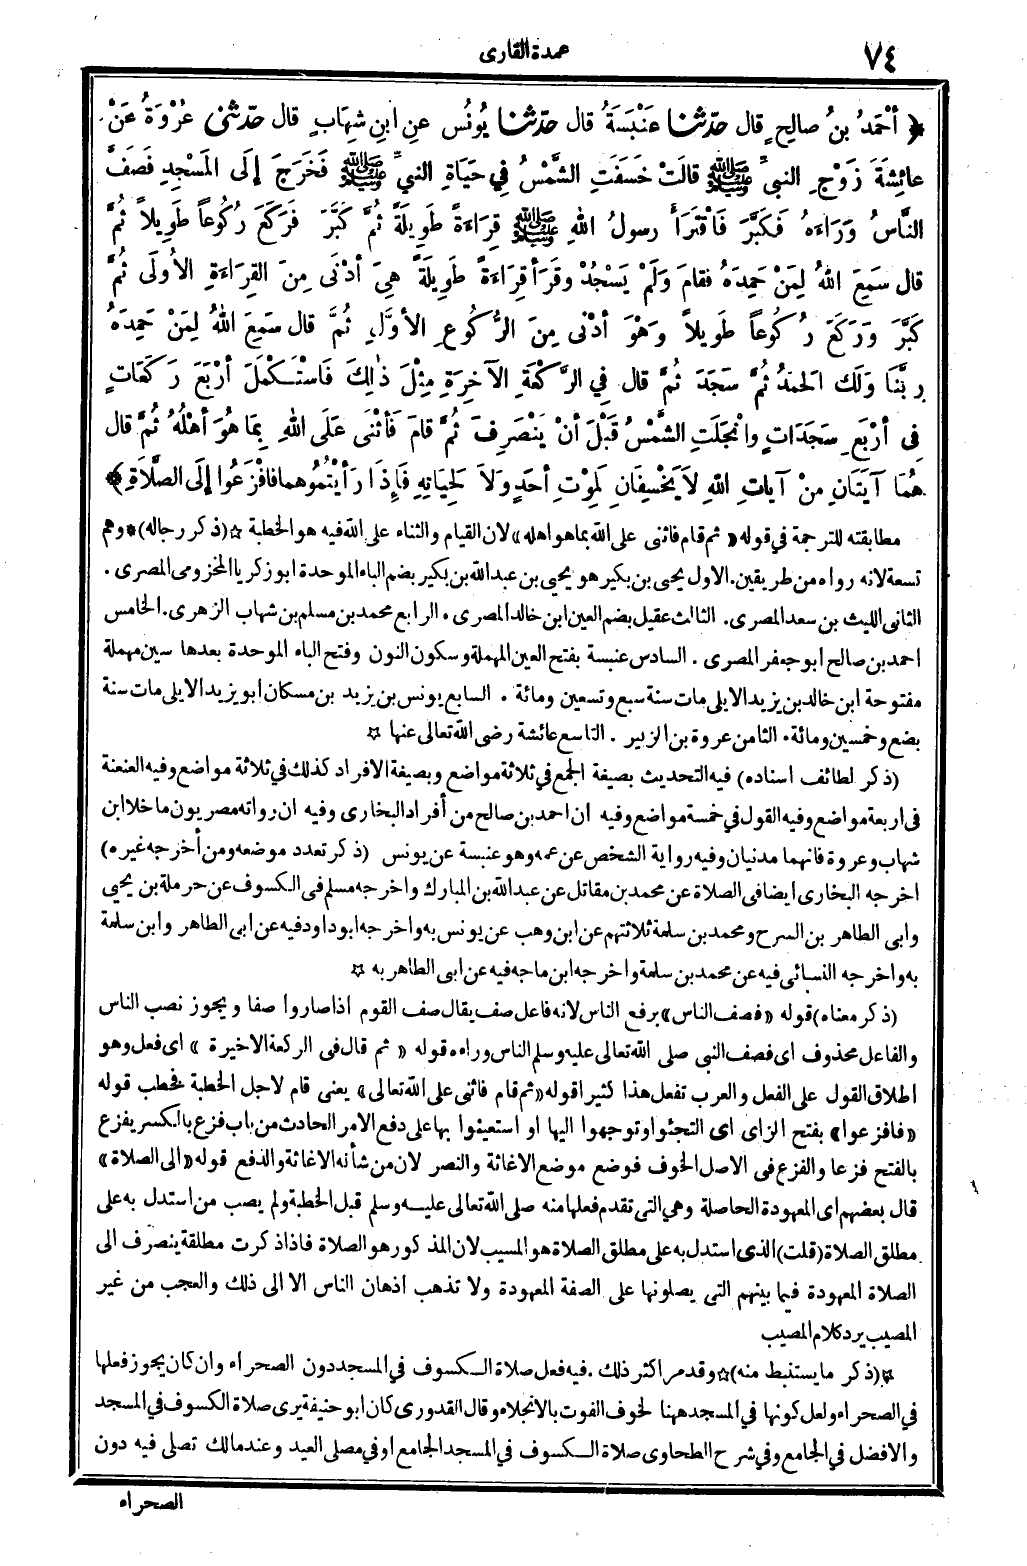 ٧٤
عمدة القارى
﴿ أحْمَدُ بنُ صالِحٍ قال حدّثنا عَنْبَسَةُ قال حدّثنا يُونُس عنِ ابنِ شِهَابٍ قال حدّثنى عُرْوَةُ عَنْ
عائِشَةَ زَوْجِ النبىِّ ﷺ قالَتْ خَسَفَتِ الشَّمْسُ فِي حَيَاةِ النبيِّ ﷺ فَخَرَجَ إلَى المَسْجِدِ فَصَفَّ
النَّاسُ وَرَاءَهُ فَكبَّرَ فَاقْتَرَأَ رسولُ اللهِ ﷺ قِرَاءَةً طَوِيلَةً ثُمَّ كَبَّرَ فَرَكَعَ رُكُوعاً طَوِيلاً ثُمَّ
قال سَمِعَ اللهُ لِمَنْ حَمِدَهُ فقامَ وَلَمْ يَسْجُدْ وقَرَأ قِرَاءَةً طَوِيلَةً هِيَ أدْنَى مِنَ القِرَاءَةِ الأولَى ثُمَّ
كَبَّرَ وَرَكَعَ رُكُوعاً طَوِيلاً وَهْوَ أدْنى مِنَ الرُّكُوعِ الأوَّلِ ثُمَّ قال سَمِعَ اللهُ لِمَنْ حَمِدَهُ
رَبَّنَا وَلَكَ الحَمْدُ ثُمَّ سَجَدَ ثُمَّ قال فِي الرَّكْعَةِ الآخِرَةِ مِثْلَ ذٰلِكَ فَاسْتَكْمَلَ أرْبَعَ رَكَعَاتٍ
فِى أرْبَعِ سَجَدَاتٍ وانْجَلَتِ الشَّمْسُ قَبْلَ أنْ يَنْصَرِفَ ثُمَّ قامَ فَأثْنَى عَلَى اللهِ بِمَا هُوَ أهْلُهُ ثُمَّ قال
هُمَا آيَتَانِ مِنْ آيَاتِ اللهِ لاَ يَخْسِفَانِ لِمَوْتِ أحَدٍ وَلاَ لِحَيَاتِهِ فَإِذَا رَأيْتُمُوهما فافْزَعُوا إلَى الصَّلاَةِ ﴾
مطابقته للترجمة في قوله «ثم قام فاثنى على الله بما هو اهله» لان القيام والثناء على الله فيه هو الخطبة ☆ (ذكر رجاله) * وهم
تسعة لانه رواه من طريقين. الاول يحيى بن بكير هو يحيى بن عبدالله بن بكير بضم الباء الموحدة ابو زكريا المخزومى المصرى.
الثانى الليث بن سعد المصرى. الثالث عقيل بضم العين ابن خالد المصرى. الرابع محمد بن مسلم بن شهاب الزهرى. الخامس
احمد بن صالح ابو جعفر المصرى. السادس عنبسة بفتح العين المهملة وسكون النون وفتح الباء الموحدة بعدها سين مهملة
مفتوحة ابن خالد بن يزيد الايلى مات سنة سبع وتسعين ومائة. السابع يونس بن يزيد بن مسكان ابو يزيد الايلى مات سنة
بضع وخمسين ومائة. الثامن عروة بن الزبير. التاسع عائشة رضى الله تعالى عنها ☆
(ذكر لطائف اسناده) فيه التحديث بصيغة الجمع في ثلاثة مواضع وبصيغة الافراد كذلك في ثلاثة مواضع وفيه العنعنة
فى اربعة مواضع وفيه القول في خمسة مواضع وفيه ان احمد بن صالح من أفراد البخارى وفيه ان رواته مصريون ما خلا ابن
شهاب وعروة فانهما مدنيان وفيه رواية الشخص عن عمه وهو عنبسة عن يونس (ذكر تعدد موضعه ومن أخرجه غيره)
اخرجه البخارى ايضا فى الصلاة عن محمد بن مقاتل عن عبدالله بن المبارك واخرجه مسلم فى الكسوف عن حرملة بن يحيى
وابى الطاهر بن السرح ومحمد بن سلمة ثلاثتهم عن ابن وهب عن يونس به واخرجه ابو داود فيه عن ابى الطاهر وابن سلمة
به واخرجه النسائى فيه عن محمد بن سلمة واخرجه ابن ماجه فيه عن ابى الطاهر به ☆
(ذكر معناه) قوله «فصف الناس» برفع الناس لانه فاعل صف يقال صف القوم اذا صاروا صفا ويجوز نصب الناس
والفاعل محذوف اى فصف النبى صلى الله تعالى عليه وسلم الناس وراءه قوله «ثم قال فى الركعة الاخيرة» اى فعل وهو
اطلاق القول على الفعل والعرب تفعل هذا كثيرا قوله «ثم قام فاثنى على الله تعالى» يعنى قام لاجل الخطبة فخطب قوله
«فافزعوا» بفتح الزاى اى التجئوا وتوجهوا اليها او استعينوا بها على دفع الامر الحادث من باب فزع بالكسر يفزع
بالفتح فزعا والفزع فى الاصل الخوف فوضع موضع الاغاثة والنصر لان من شأنه الاغاثة والدفع قوله «الى الصلاة»
قال بعضهم اى المعهودة الحاصلة وهي التى تقدم فعلها منه صلى الله تعالى عليه وسلم قبل الخطبة ولم يصب من استدل به على
مطلق الصلاة (قلت) الذى استدل به على مطلق الصلاة هو المصيب لان المذكور هو الصلاة فاذا ذكرت مطلقة ينصرف الى
الصلاة المعهودة فيما بينهم التى يصلونها على الصفة المعهودة ولا تذهب اذهان الناس الا الى ذلك والعجب من غير
المصيب يرد كلام المصيب
☆ (ذكر ما يستنبط منه) ☆ وقد مر اكثر ذلك. فيه فعل صلاة الكسوف في المسجد دون الصحراء وان كان يجوز فعلها
في الصحراء ولعل كونها في المسجد ههنا لخوف الفوت بالانجلاء وقال القدورى كان ابو حنيفة يرى صلاة الكسوف في المسجد
والافضل في الجامع وفي شرح الطحاوى صلاة الكسوف في المسجد الجامع او في مصلى العيد وعند مالك تصلى فيه دون
الصحراء